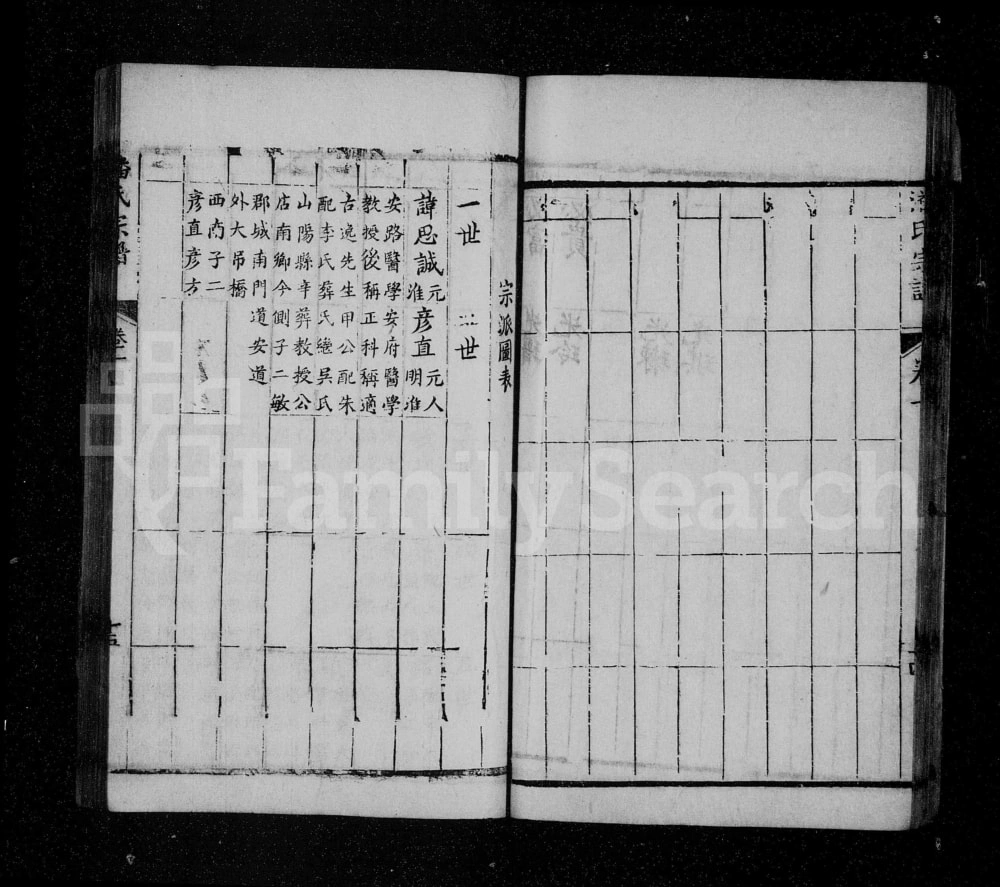 潘氏宗譜 卷一 十四
宗派圖表
一世 二世
諱思誠元淮 彥直元明人淮
安路醫學 安府醫學
教授後稱 正科稱適
古逸先生 甲公配朱
配李氏葬 氏繼吳氏
山陽縣辛 葬教授公
店南鄉今 側子二敏
郡城南門 道安道
外大吊橋
西內子二
彥直彥方
潘氏宗譜 卷一 十五
FamilySearch